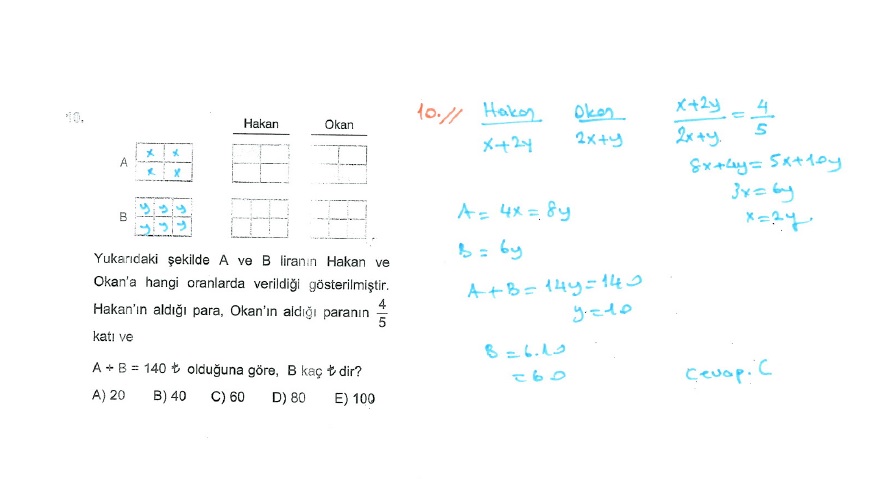 10.
Hakan Okan
A x x
x x
B y y y
y y y
Yukarıdaki şekilde A ve B liranın Hakan ve
Okan'a hangi oranlarda verildiği gösterilmiştir.
Hakan'ın aldığı para, Okan'ın aldığı paranın 4/5
katı ve
A + B = 140 ₺ olduğuna göre, B kaç ₺ dir?
A) 20 B) 40 C) 60 D) 80 E) 100
10.//
Hakan Okan
x+2y 2x+y
x+2y/2x+y = 4/5
8x+4y = 5x+10y
3x = 6y
x = 2y
A = 4x = 8y
B = 6y
A + B = 14y = 140
y = 10
B = 6.10
= 60
Cevap. C